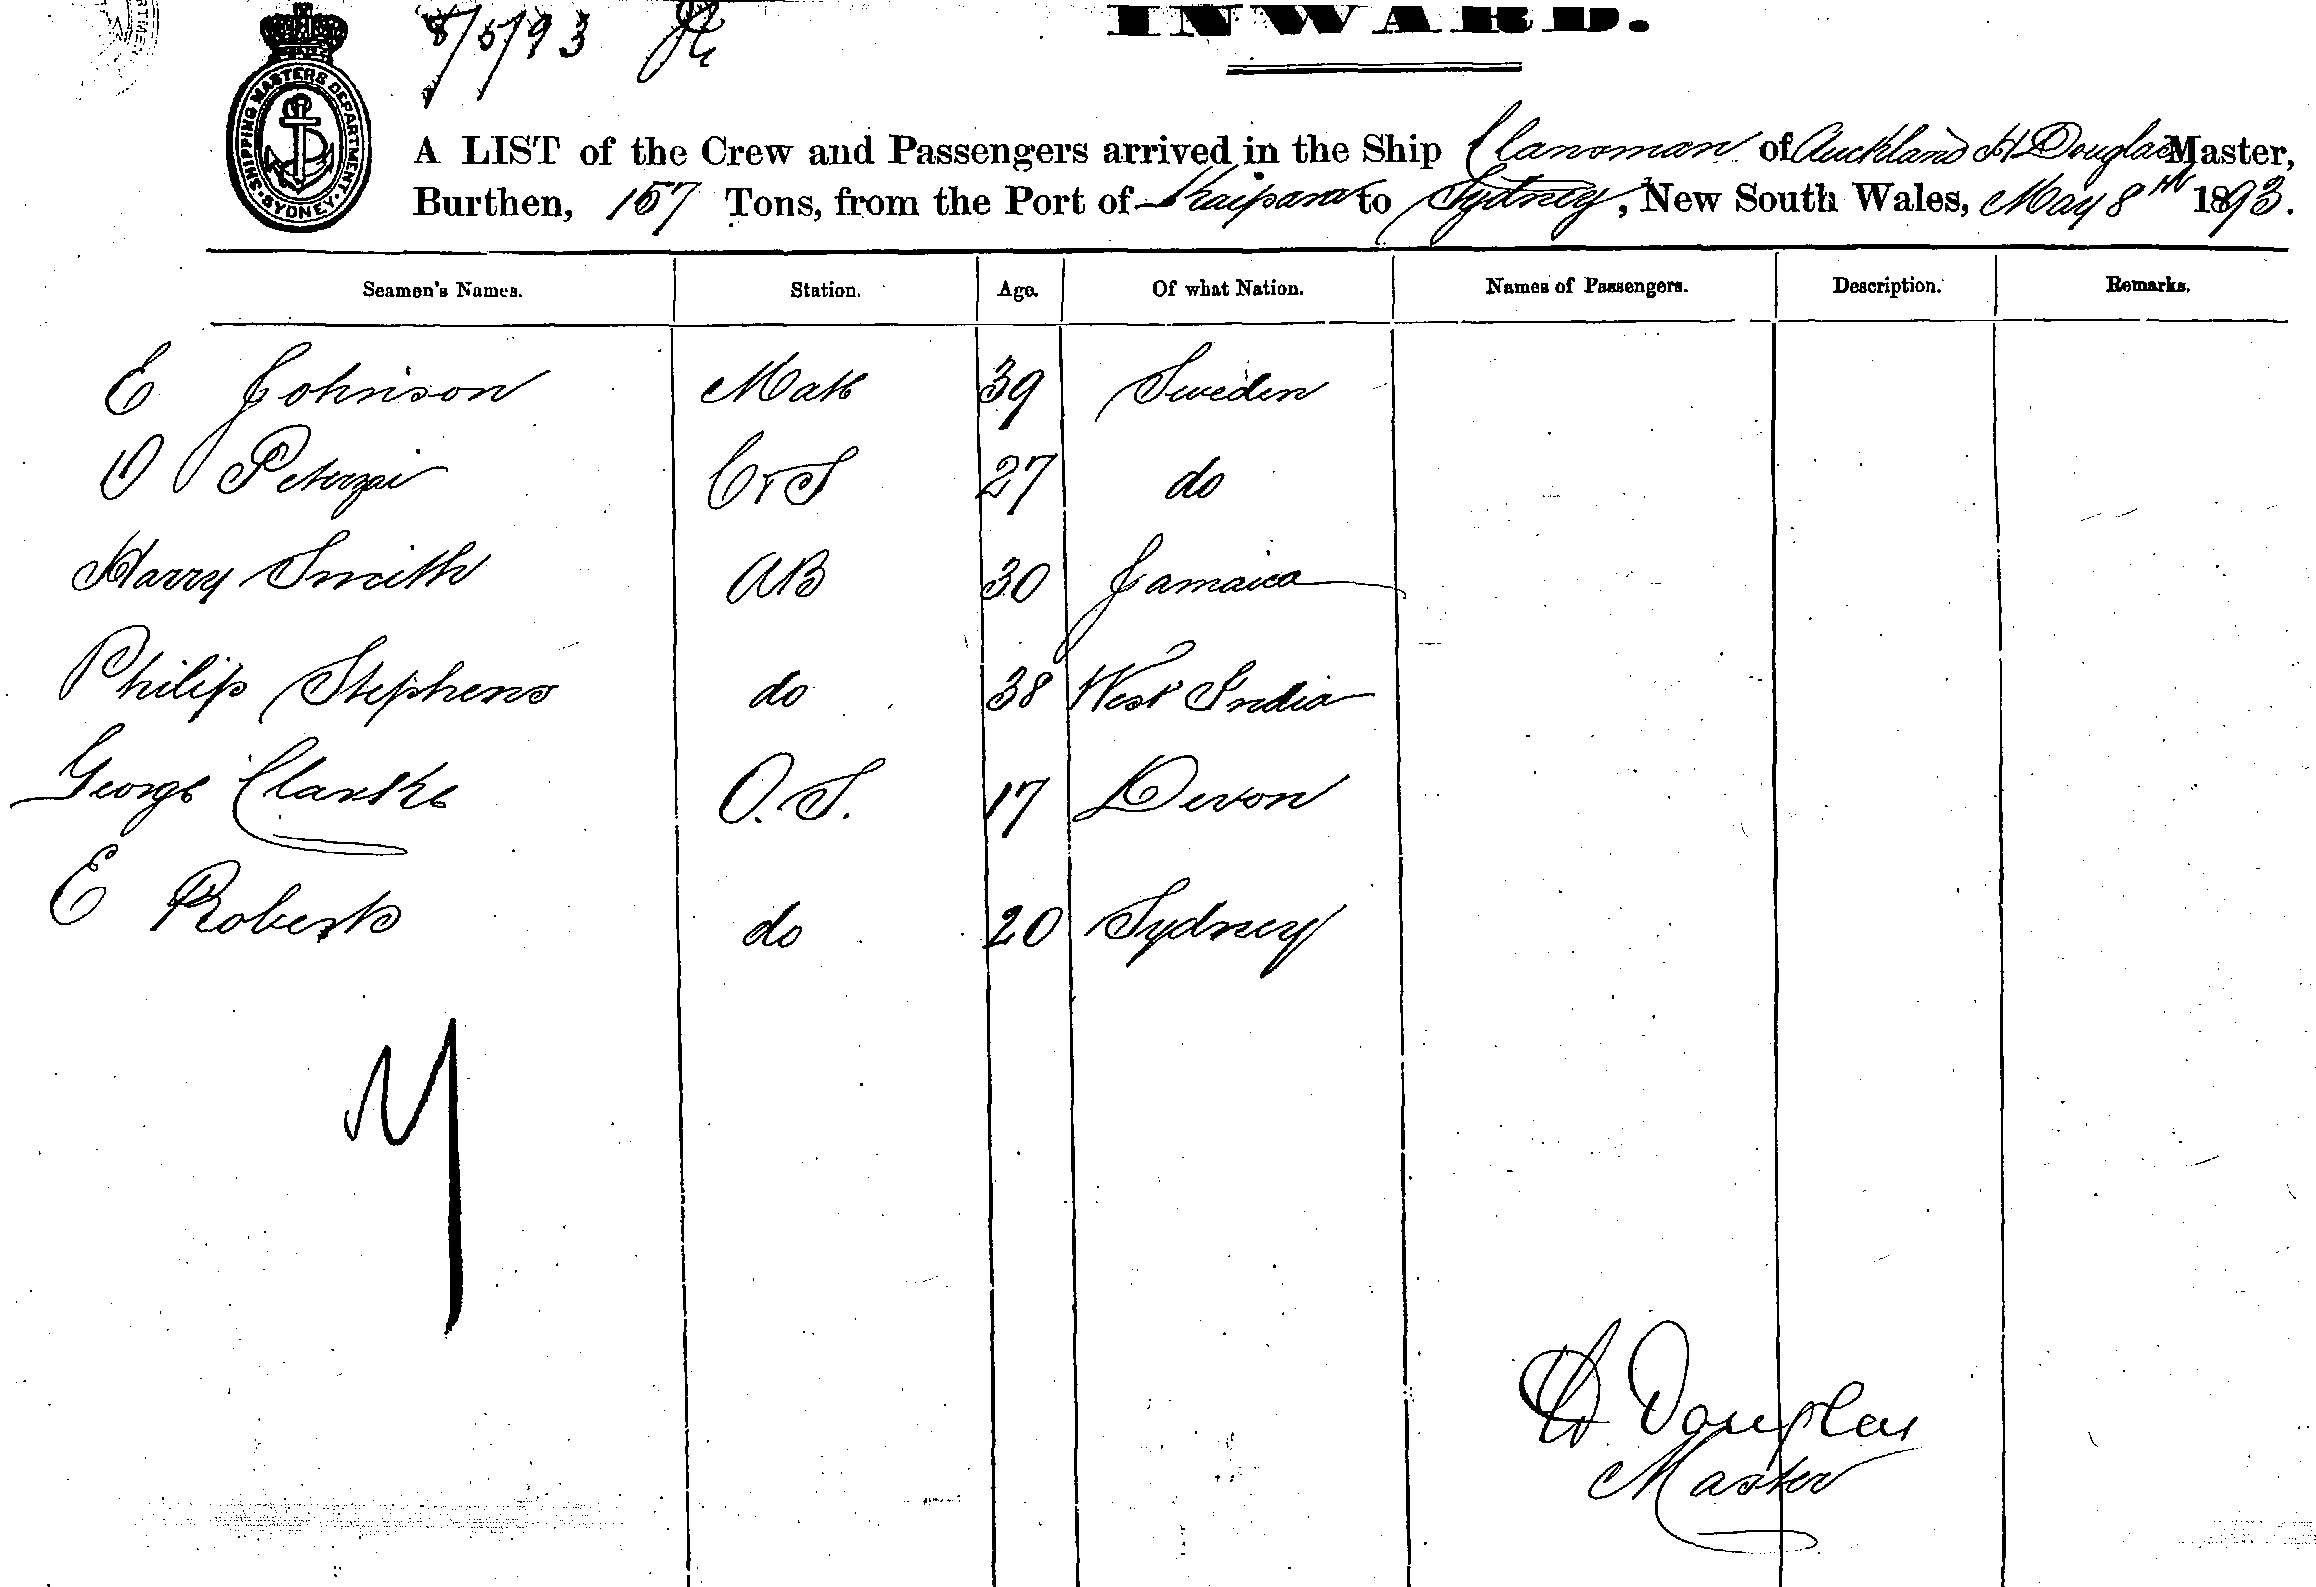 8/5/93
INWARD.
SHIPPING MASTERS DEPARTMENT SYDNEY
A LIST of the Crew and Passengers arrived in the Ship Clansman of Auckland H Douglas Master,
Burthen, 157 Tons, from the Port of Kaipara to Sydney, New South Wales, May 8th 1893.
Seamen's Names. Station. Age. Of what Nation. Names of Passengers. Description. Remarks.
E Johnson Mate 39 Sweden
O 27 do
Harry Smith AB 30 Jamaica
Philip Stephens do 38 West India
George Clarke O.S. 17 Devon
E Roberts do 20 Sydney
H Douglas
Master